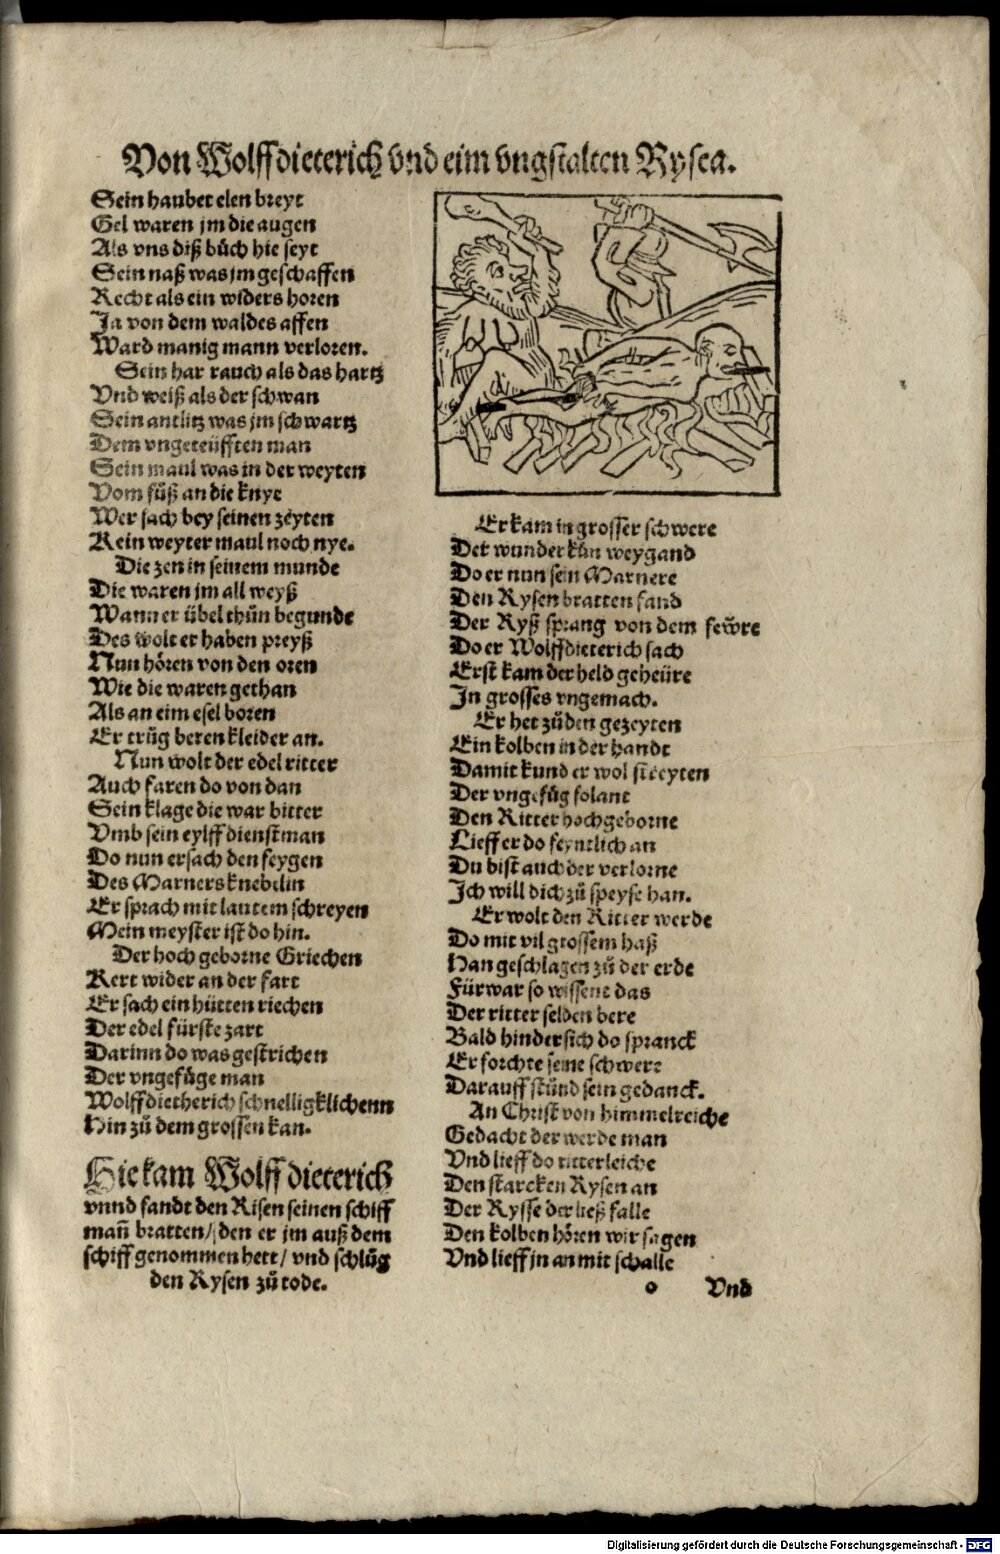 Von Wolffdieterich vnd eim vngstalten Rysen.
Sein haubet elen breyt
Gel waren jm die augen
Als vns diß bůch hie seyt
Sein naß was jm geschaffen
Recht als ein widers horen
Ja von dem waldes affen
Ward manig mann verloren.
Sein har rauch als das hartz
Vnd weiß als der schwan
Sein antlitz was jm schwartz
Dem vngeteüfften man
Sein maul was in der weyten
Vom fůß an die knye
Wer sach bey seinen zeyten
Kein weyter maul noch nye.
Die zen in seinem munde
Die waren jm all weyß
Wann er übel thůn begunde
Des wolt er haben preyß
Nun hören von den oren
Wie die waren gethan
Als an eim esel boren
Er trůg beren kleider an.
Nun wolt der edel ritter
Auch faren do von dan
Sein klage die war bitter
Vmb sein eylff dienstman
Do nun ersach den feygen
Des Marners knebelin
Er sprach mit lautem schreyen
Mein meyster ist do hin.
Der hoch geborne Griechen
Kert wider an der fart
Er sach ein hütten riechen
Der edel fürste zart
Darinn do was gestrichen
Der vngefüge man
Wolffdietherich schnelligklichenn
Hin zů dem grossen kan.
Hie kam Wolffdieterich
vnnd fandt den Risen seinen schiff
mañ bratten / den er jm auß dem
schiff genommen hett / vnd schlůg
den Rysen zů tode.
Er kam in grosser schwere
Der wunder kůn weygand
Do er nun sein Marnere
Den Rysen bratten fand
Der Ryß sprang von dem fewre
Do er Wolffdieterich sach
Erst kam der held geheüre
In grosses vngemach.
Er het zů den gezeyten
Ein kolben in der handt
Damit kund er wol streyten
Der vngefůg folant
Den Ritter hochgeborne
Lieff er do feyntlich an
Du bist auch der verlorne
Ich will dich zů speyse han.
Er wolt den Ritter werde
Do mit vil grossem haß
Han geschlagen zů der erde
Fürwar so wissent das
Der ritter selden bere
Bald hindersich do spranck
Er forchte seine schwere
Darauff stůnd sein gedanck.
An Christ von himmelreiche
Gedacht der werde man
Vnd lieff do ritterleiche
Den starcken Rysen an
Der Rysse der ließ falle
Den kolben hören wir sagen
Vnd lieff jn an mit schalle
o Vnd
Digitalisierung gefördert durch die Deutsche Forschungsgemeinschaft - DFG